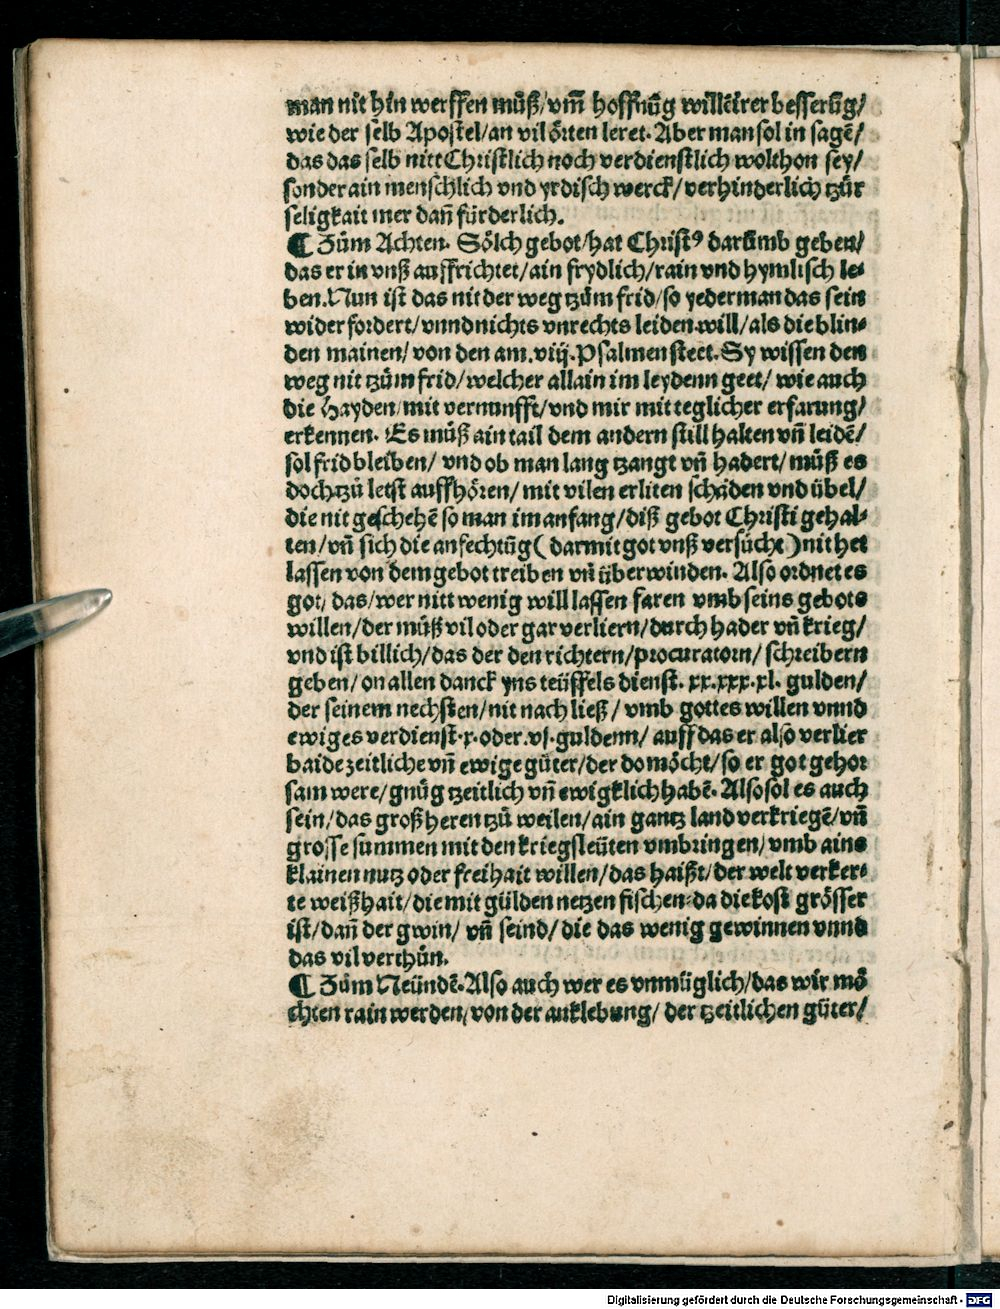 man nit hin werffen můß/vm̃ hoffnũg willẽ irer besserũg/
wie der selb Apostel/an vil örten leret. Aber man sol in sagẽ/
das das selb nitt Christlich noch verdienstlich wolthon sey/
sonder ain menschlich vnd yrdisch werck/verhinderlich tzůr
seligkait mer dañ fürderlich.
¶ Zům Achten. Sölch gebot/hat Christꝰ darũmb geben/
das er in vnß auffrichtet/ain frydlich/rain vnd hymlisch le-
ben. Nun ist das nit der weg tzům frid/so yederman das sein
wider fordert/vnnd nichts vnrechts leiden will/als die blin-
den mainen/von den am .viij. Psalmen steet. Sy wissen den
weg nit tzům frid/welcher allain im leydenn geet/wie auch
die Hayden/mit vernunfft/vnd mir mit teglicher erfarung/
erkennen. Es můß ain tail dem andern still halten vñ leidẽ/
sol frid bleiben/ vnd ob man lang tzangt vñ hadert/můß es
doch tzů letst auffhören/mit vilen erliten schäden vnd übel/
die nit geschehẽ so man im anfang/diß gebot Christi gehal-
ten/vñ sich die anfechtũg(darmit got vnß versůcht)nit het
lassen von dem gebot treiben vñ überwinden. Also ordnet es
got/das/wer nitt wenig will lassen faren vmb seins gebots
willen/der můß vil oder gar verliern/durch hader vñ krieg/
vnd ist billich/das der den richtern/procuratorn/schreibern
geben/on allen danck yns teüffels dienst. xx.xxx.xl. gulden/
der seinem nechsten/nit nach ließ/vmb gottes willen vnnd
ewiges verdienst.x.oder.vj.guldenn/auff das er also verlier
baide zeitliche vñ ewige güter/der do möcht/so er got gehor
sam were/gnůg tzeitlich vñ ewigklich habẽ. Also sol es auch
sein/das groß heren tzů weilen/ain gantz land verkriegẽ/vñ
grosse summen mit den kriegsleüten vmbringen/vmb ains
klainen nutz oder freihait willen/das haißt/der welt verker-
te weißhait/die mit gülden netzen fischen-da die kost grösser
ist/dañ der gwin/vñ seind/die das wenig gewinnen vnnd
das vil verthůn.
¶ Zům Neündẽ. Also auch wer es vnmüglich/das wir mö
chten rain werden/von der anklebung/der tzeitlichen güter/
Digitalisierung gefördert durch die Deutsche Forschungsgemeinschaft - DFG